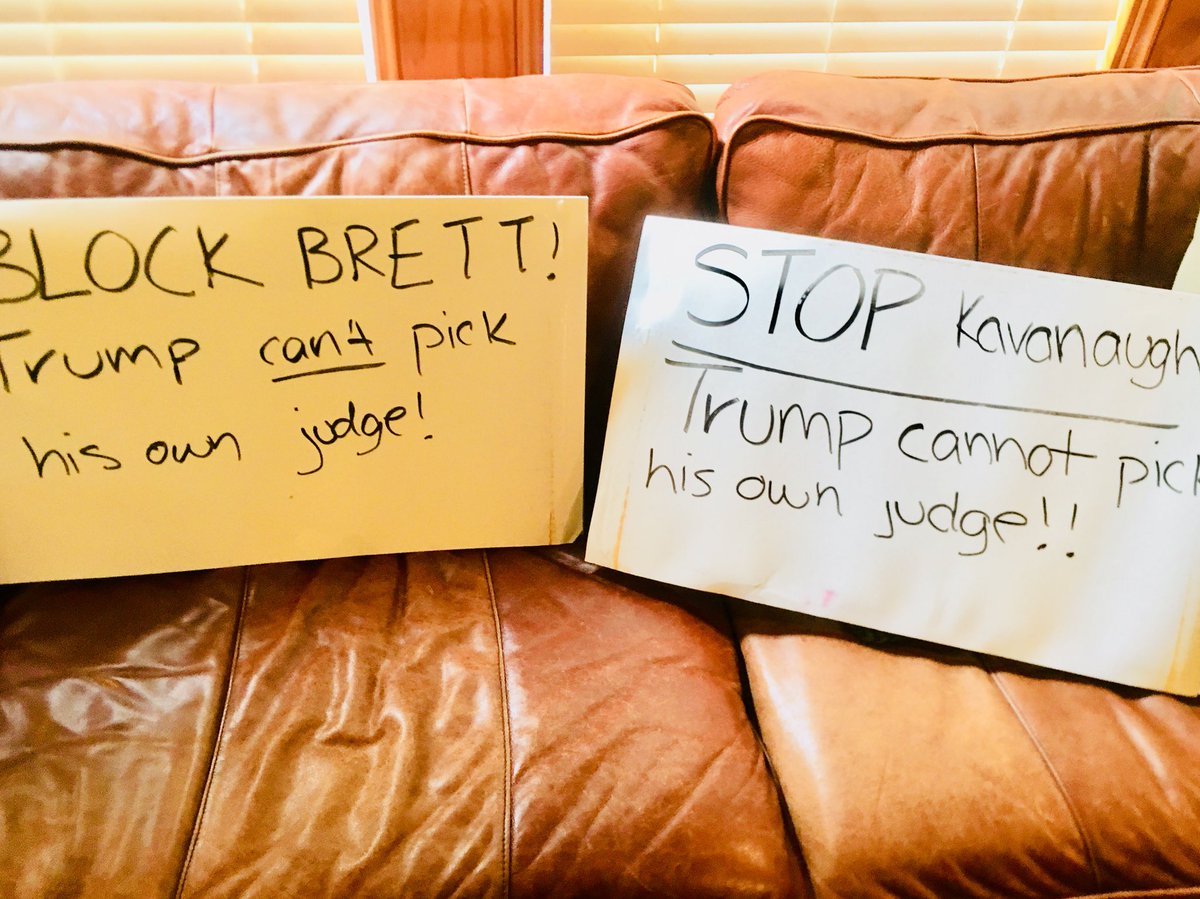 BLOCK BRETT!
Trump can't pick
his own judge!
STOP Kavanaugh
Trump cannot pick
his own judge!!